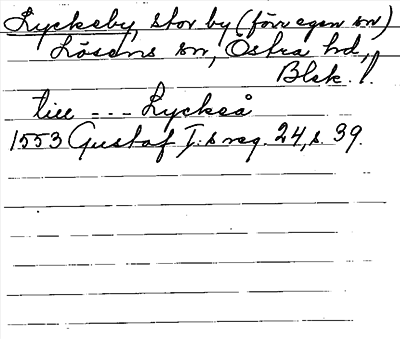 Lyckeby, stor by (förr egen sn)
Lösens sn, Östra hd,
Blek. l.
till --- Lyckeå
1553 Gustaf I:s reg. 24, s. 39.